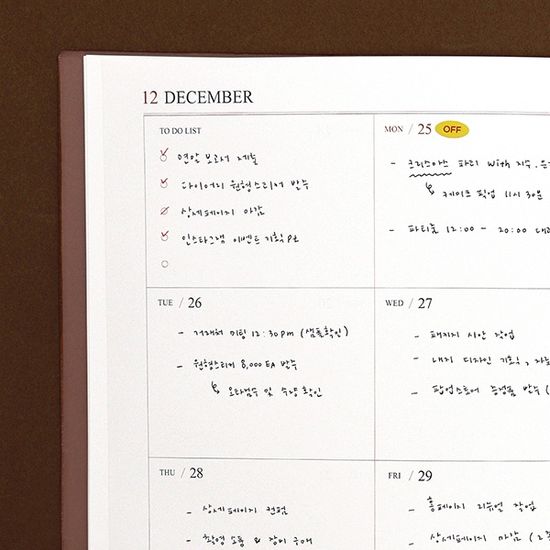 12 DECEMBER
TO DO LIST
연말 보고서 제출
다이어리 원형스티커 발주
상세페이지 마감
인스타그램 이벤트 기획 pt
MON / 25 OFF
- 크리스마스 파티 with 지수.
↳ 케이크 픽업 11시 30분
- 파티룸 12:00 - 20:00 대
TUE / 26
- 거래처 미팅 12:30pm (샘플확인)
- 원형스티커 8,000 EA 발주
↳ 오타검수 및 수량 확인
WED / 27
- 패키지 시안 작업
- 내지 디자인 기획,
- 팝업스토어 증정품 발주 (
THU / 28
- 상세페이지 컨펌
- 촬영 소품 & 장비 구매
FRI / 29
- 홈페이지 리뉴얼 작업
- 상세페이지 마감 (